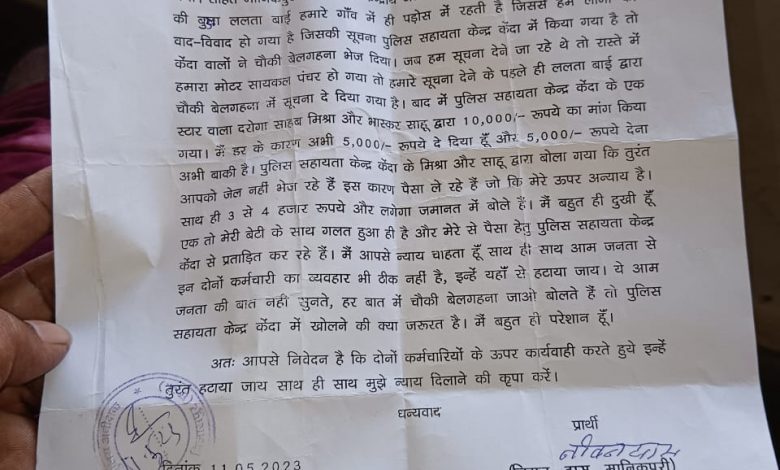 की बुआ ललता बाई हमारे गाँव में ही पड़ोस में रहती है जिससे हम
वाद-विवाद हो गया है जिसकी सूचना पुलिस सहायता केन्द्र केंदा में किया गया है तो
केंदा वालों ने चौकी बेलगहना भेज दिया। जब हम सूचना देने जा रहे थे तो रास्ते में
हमारा मोटर सायकल पंचर हो गया तो हमारे सूचना देने के पहले ही ललता बाई द्वारा
चौकी बेलगहना में सूचना दे दिया गया है। बाद में पुलिस सहायता केन्द्र केंदा के एक
स्टार वाला दरोगा साहब मिश्रा और भास्कर साहू द्वारा 10,000/- रूपये का मांग किया
गया। मैं डर के कारण अभी 5,000/- रूपये दे दिया हूँ और 5,000/- रूपये देना
अभी बाकी है। पुलिस सहायता केन्द्र केंदा के मिश्रा और साहू द्वारा बोला गया कि तुरंत
आपको जेल नहीं भेज रहे हैं इस कारण पैसा ले रहे हैं जो कि मेरे ऊपर अन्याय है।
साथ ही 3 से 4 हजार रूपये और लगेगा जमानत में बोले हैं। मैं बहुत ही दुखी हूँ
एक तो मेरी बेटी के साथ गलत हुआ ही है और मेरे से पैसा हेतु पुलिस सहायता केन्द्र
केंदा से प्रताड़ित कर रहे हैं। मैं आपसे न्याय चाहता हूँ साथ ही साथ आम जनता से
इन दोनों कर्मचारी का व्यवहार भी ठीक नहीं है, इन्हें यहाँ से हटाया जाय। ये आम
जनता की बात नहीं सुनते, हर बात में चौकी बेलगहना जाओ बोलते हैं तो पुलिस
सहायता केन्द्र केंदा में खोलने की क्या जरूरत है। मैं बहुत ही परेशान हूँ।
अतः आपसे निवेदन है कि दोनों कर्मचारियों के ऊपर कार्यवाही करते हुये इन्हें
तुरंत हटाया जाय साथ ही साथ मुझे न्याय दिलाने की कृपा करें।
धन्यवाद
प्रार्थी
दिनांक 11.05.2023